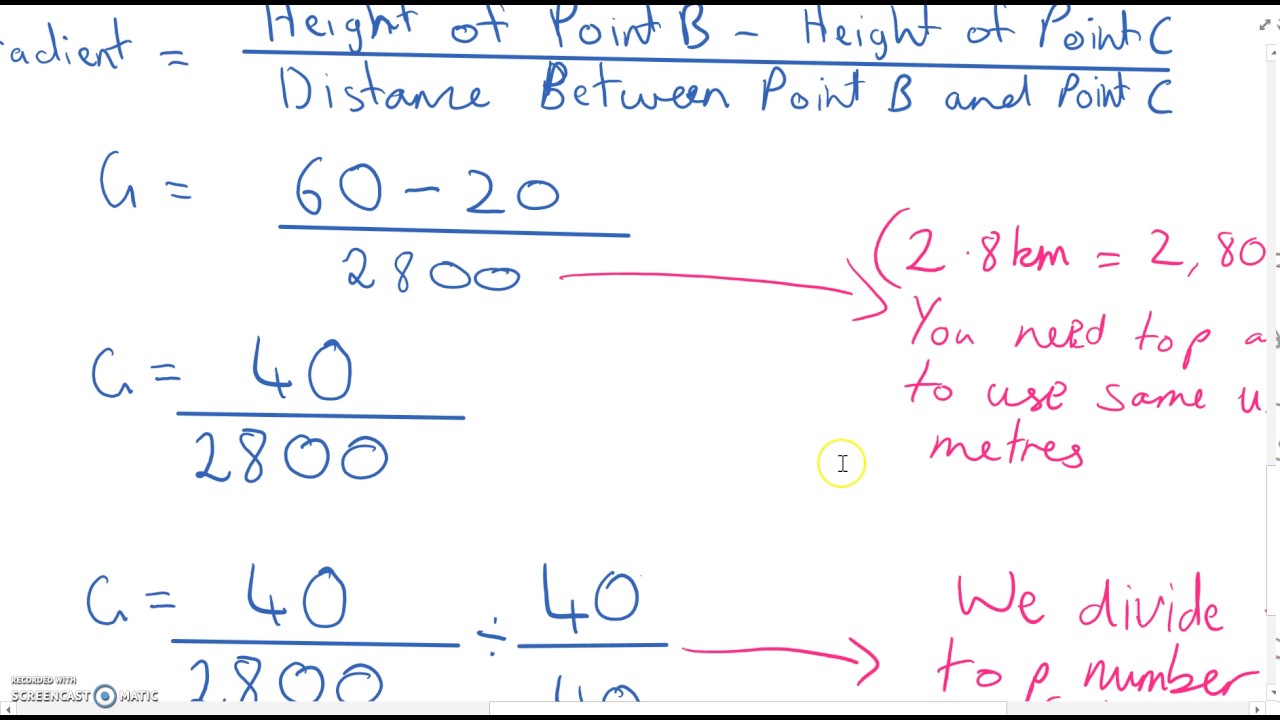 Height of Point B - Height of Point C
adient =
Distance Between Point B and Point C
G = 60 - 20
2800
(2.8km = 2,80
You need top a
to use same u
metres
G = 40
2800
G = 40 ÷ 40
2800 40
We divide
top number
RECORDED WITH
SCREENCAST MATIC